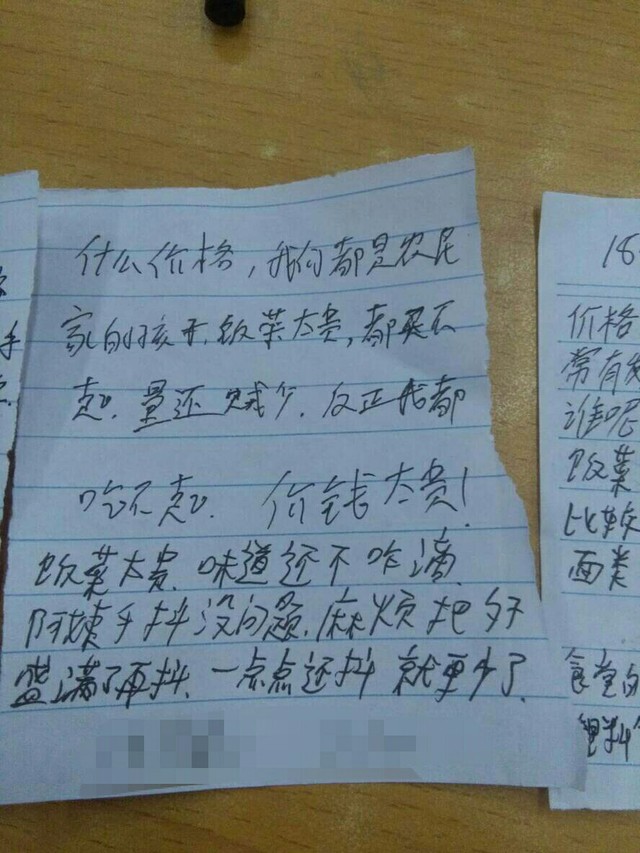 什么价格，我们都是农民
家的孩子，饭菜太贵，都买不
起。量还贼少，反正我都
吃不起。价钱太贵！
饭菜太贵，味道还不咋滴
阿姨手抖没问题，麻烦把勺
盛满了再抖，一点点还抖就更少了
手
18
价格
常有
谁呢
饭菜
比较
面类
食堂